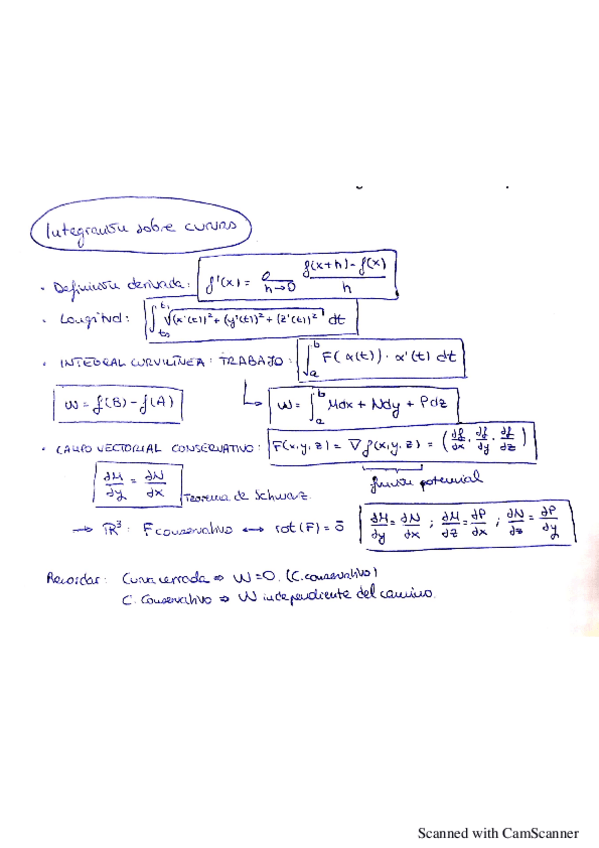 Integración sobre curvas
· Definición derivada: f'(x) = 0/h→0 f(x+h)-f(x)/h
· Longitud: ∫_{t₀}^{t₁} √((x'(t))² + (y'(t))² + (z'(t))²) dt
· INTEGRAL CURVILÍNEA: TRABAJO: ∫_a^b F(α(t)) · α'(t) dt
W = f(B) - f(A) W = ∫_a^b Mdx + Ndy + Pdz
· CAMPO VECTORIAL CONSERVATIVO: F(x,y,z) = ∇f(x,y,z) = (∂f/∂x, ∂f/∂y, ∂f/∂z)
∂M/∂y = ∂N/∂x Teorema de Schwarz función potencial
→ ℝ³: F conservativo ↔ rot(F) = 0̄ ∂M/∂y = ∂N/∂x ; ∂M/∂z = ∂P/∂x ; ∂N/∂z = ∂P/∂y
Recordar: Curva cerrada ⇒ W=0. (C. conservativo)
C. Conservativo ⇒ W independiente del camino.
Scanned with CamScanner